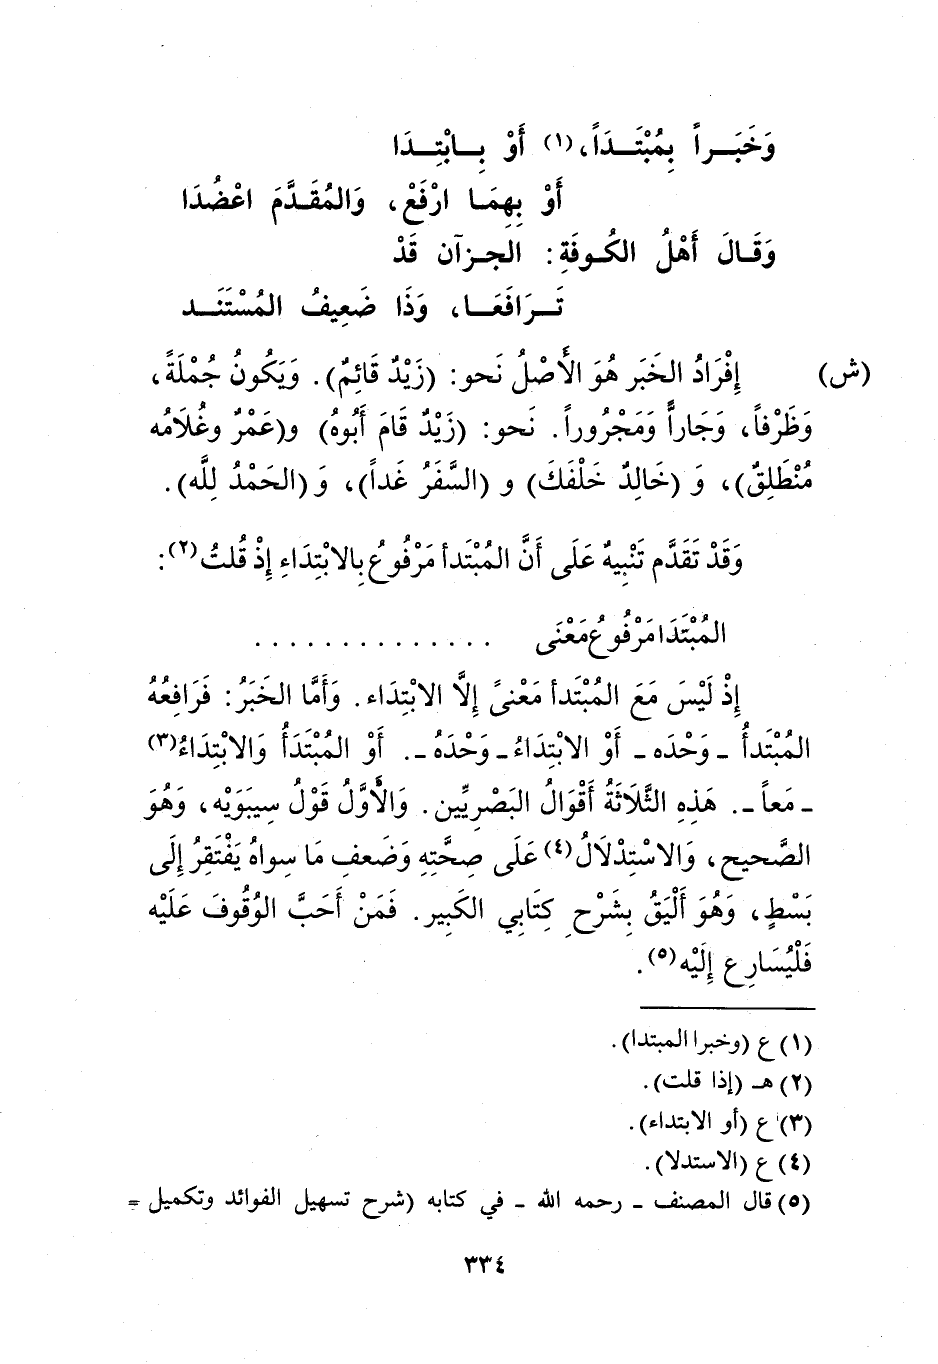 وَخَبَراً بِمُبْتَدَأً،(١) أَوْ بِابْتِدَا
أَوْ بِهِمَا ارْفَعْ، وَالمُقَدَّمَ اعْضُدَا
وَقَالَ أَهْلُ الكُوفَةِ: الجزآن قَدْ
تَرَافَعَا، وَذَا ضَعِيفُ المُسْتَنَد
(ش) إِفْرَادُ الخَبَر هُوَ الأَصْلُ نَحو: (زَيْدٌ قَائِمٌ). وَيَكُونُ جُمْلَةً،
وَظَرْفاً، وَجَاراًّ وَمَجْرُوراً. نَحو: (زَيْدٌ قَامَ أَبُوهُ) و(عَمْرٌ وغُلَامُه
مُنْطَلِقٌ)، وَ (خَالِدٌ خَلْفَكَ) و (السَّفَرُ غَداً)، وَ (الحَمْدُ لِلَّه).
وَقَدْ تَقَدَّم تَنْبِيهٌ عَلَى أَنَّ المُبْتَدأ مَرْفُوعٌ بِالابْتِدَاءِ إِذْ قُلتُ(٢):
المُبْتَدَا مَرْفُوعُ مَعْنَى . . . . . . . . . . . . . .
إِذْ لَيْسَ مَعَ المُبْتَدأ مَعْنىً إِلاَّ الابْتِدَاء. وَأَمَّا الخَبَرُ: فَرَافِعُهُ
المُبْتَدأُ - وَحْدَه - أَوْ الابْتِدَاءُ - وَحْدَهُ -. أَوْ المُبْتَدَأُ وَالابْتِدَاءُ(٣)
- مَعاً -. هَذِهِ الثَّلَاثَةُ أَقْوَالُ البَصْرِيِّين. وَالأَوَّلُ قَوْلُ سِيبَوَيْه، وَهُوَ
الصَّحيح، وَالاسْتِدْلَالُ(٤) عَلَى صِحَّتِهِ وَضَعفِ مَا سِواهُ يَفْتَقِرُ إِلَى
بَسْطٍ، وَهُوَ أَلْيَقُ بِشَرْحِ كِتَابي الكَبِير. فَمَنْ أَحَبَّ الوُقُوفَ عَلَيْه
فَلْيُسَارِع إِلَيْه(٥).
(١) ع (وخبرا المبتدا).
(٢) هـ (إذا قلت).
(٣) ع (أو الابتداء).
(٤) ع (الاستدلا).
(٥) قال المصنف - رحمه الله - في كتابه (شرح تسهيل الفوائد وتكميل =
٣٣٤